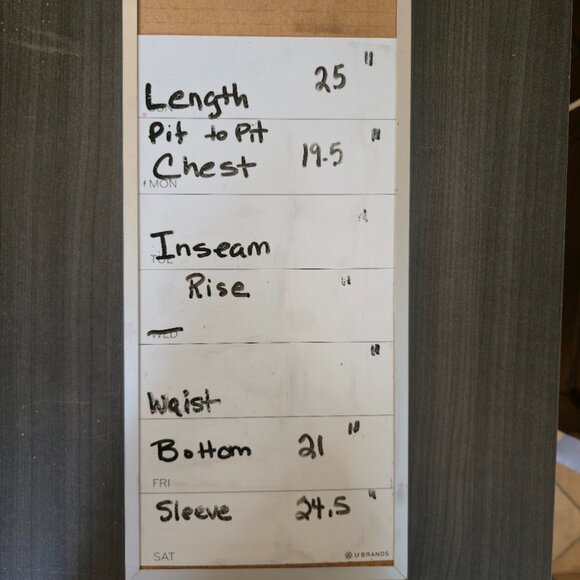 Length 25 "
Pit to Pit
Chest 19.5 "
MON
Inseam "
TUE
Rise "
WED
Waist "
Bottom 21 "
FRI
Sleeve 24.5 "
SAT
U BRANDS